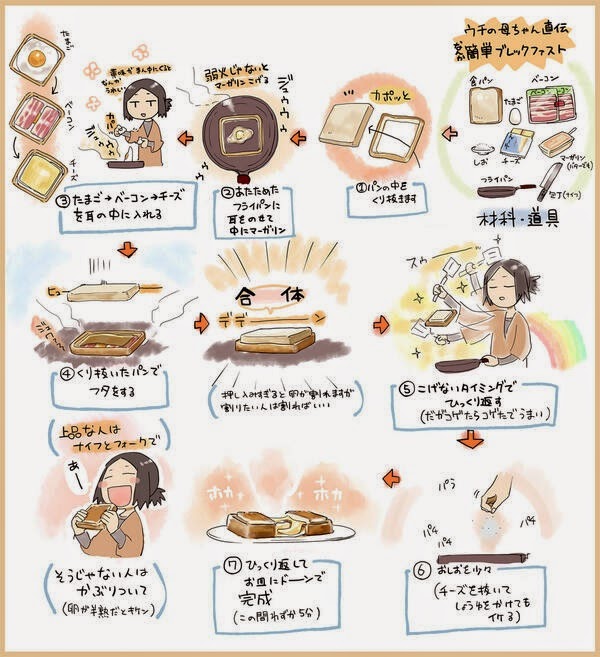 ウチの母ちゃん直伝
簡単ブレックファスト
食パン
たまご
ベーコン
ベーコン
しお
チーズ
マーガリン
(バターでも)
フライパン
包丁(ナイフ)
材料・道具
カポッと
①パンの中を
くり抜きます
弱火じゃないと
マーガリンこげる
ジュウウウ
②あたためた
フライパンに
耳をのせて
中にマーガリン
黄味がまん中にくると
なんか
うれしい
カパ
たまご
ベーコン
チーズ
③たまご→ベーコン→チーズ
を耳の中に入れる
ヒュー
④くり抜いたパンで
フタをする
合体
デデーーーーン
(押し込みすぎると卵が割れますが
割りたい人は割ればいい)
スゥーーッ
⑤こげないタイミングで
ひっくり返す
(だがコゲたらコゲたでうまい)
パラ
パチ
パチ
パチ
⑥おしおを少々
(チーズを抜いて
しょうゆをかけても
イケる)
ホカ
ホカ
⑦ひっくり返して
お皿にドーンで
完成
(この間わずか5分)
(上品な人は
ナイフとフォークで)
あー
(そうじゃない人は
かぶりついて
(卵が半熟だとキケン))